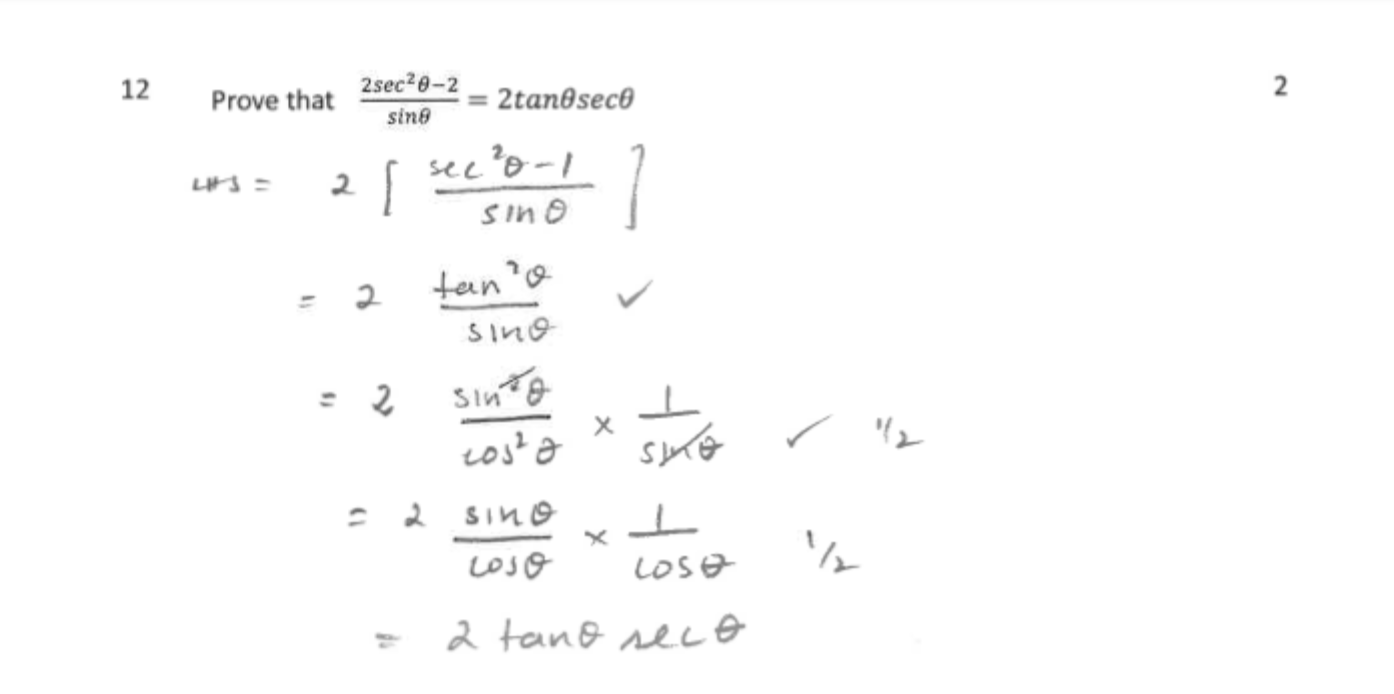 12 Prove that (2sec²θ−2)/sinθ = 2tanθsecθ 2
LHS = 2 [ (sec²θ−1)/(sinθ) ]
= 2 (tan²θ)/(sinθ) ✓
= 2 (sin²θ)/(cos²θ) × 1/(sinθ) ✓ 1/2
= 2 (sinθ)/(cosθ) × 1/(cosθ) 1/2
= 2 tanθ secθ